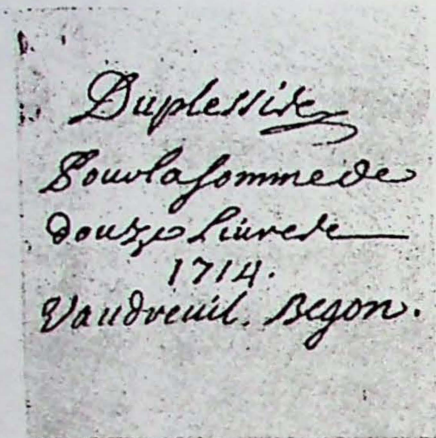 Duplessis
Pour la somme de
douze Livres
1714.
Vaudreuil. Begon.